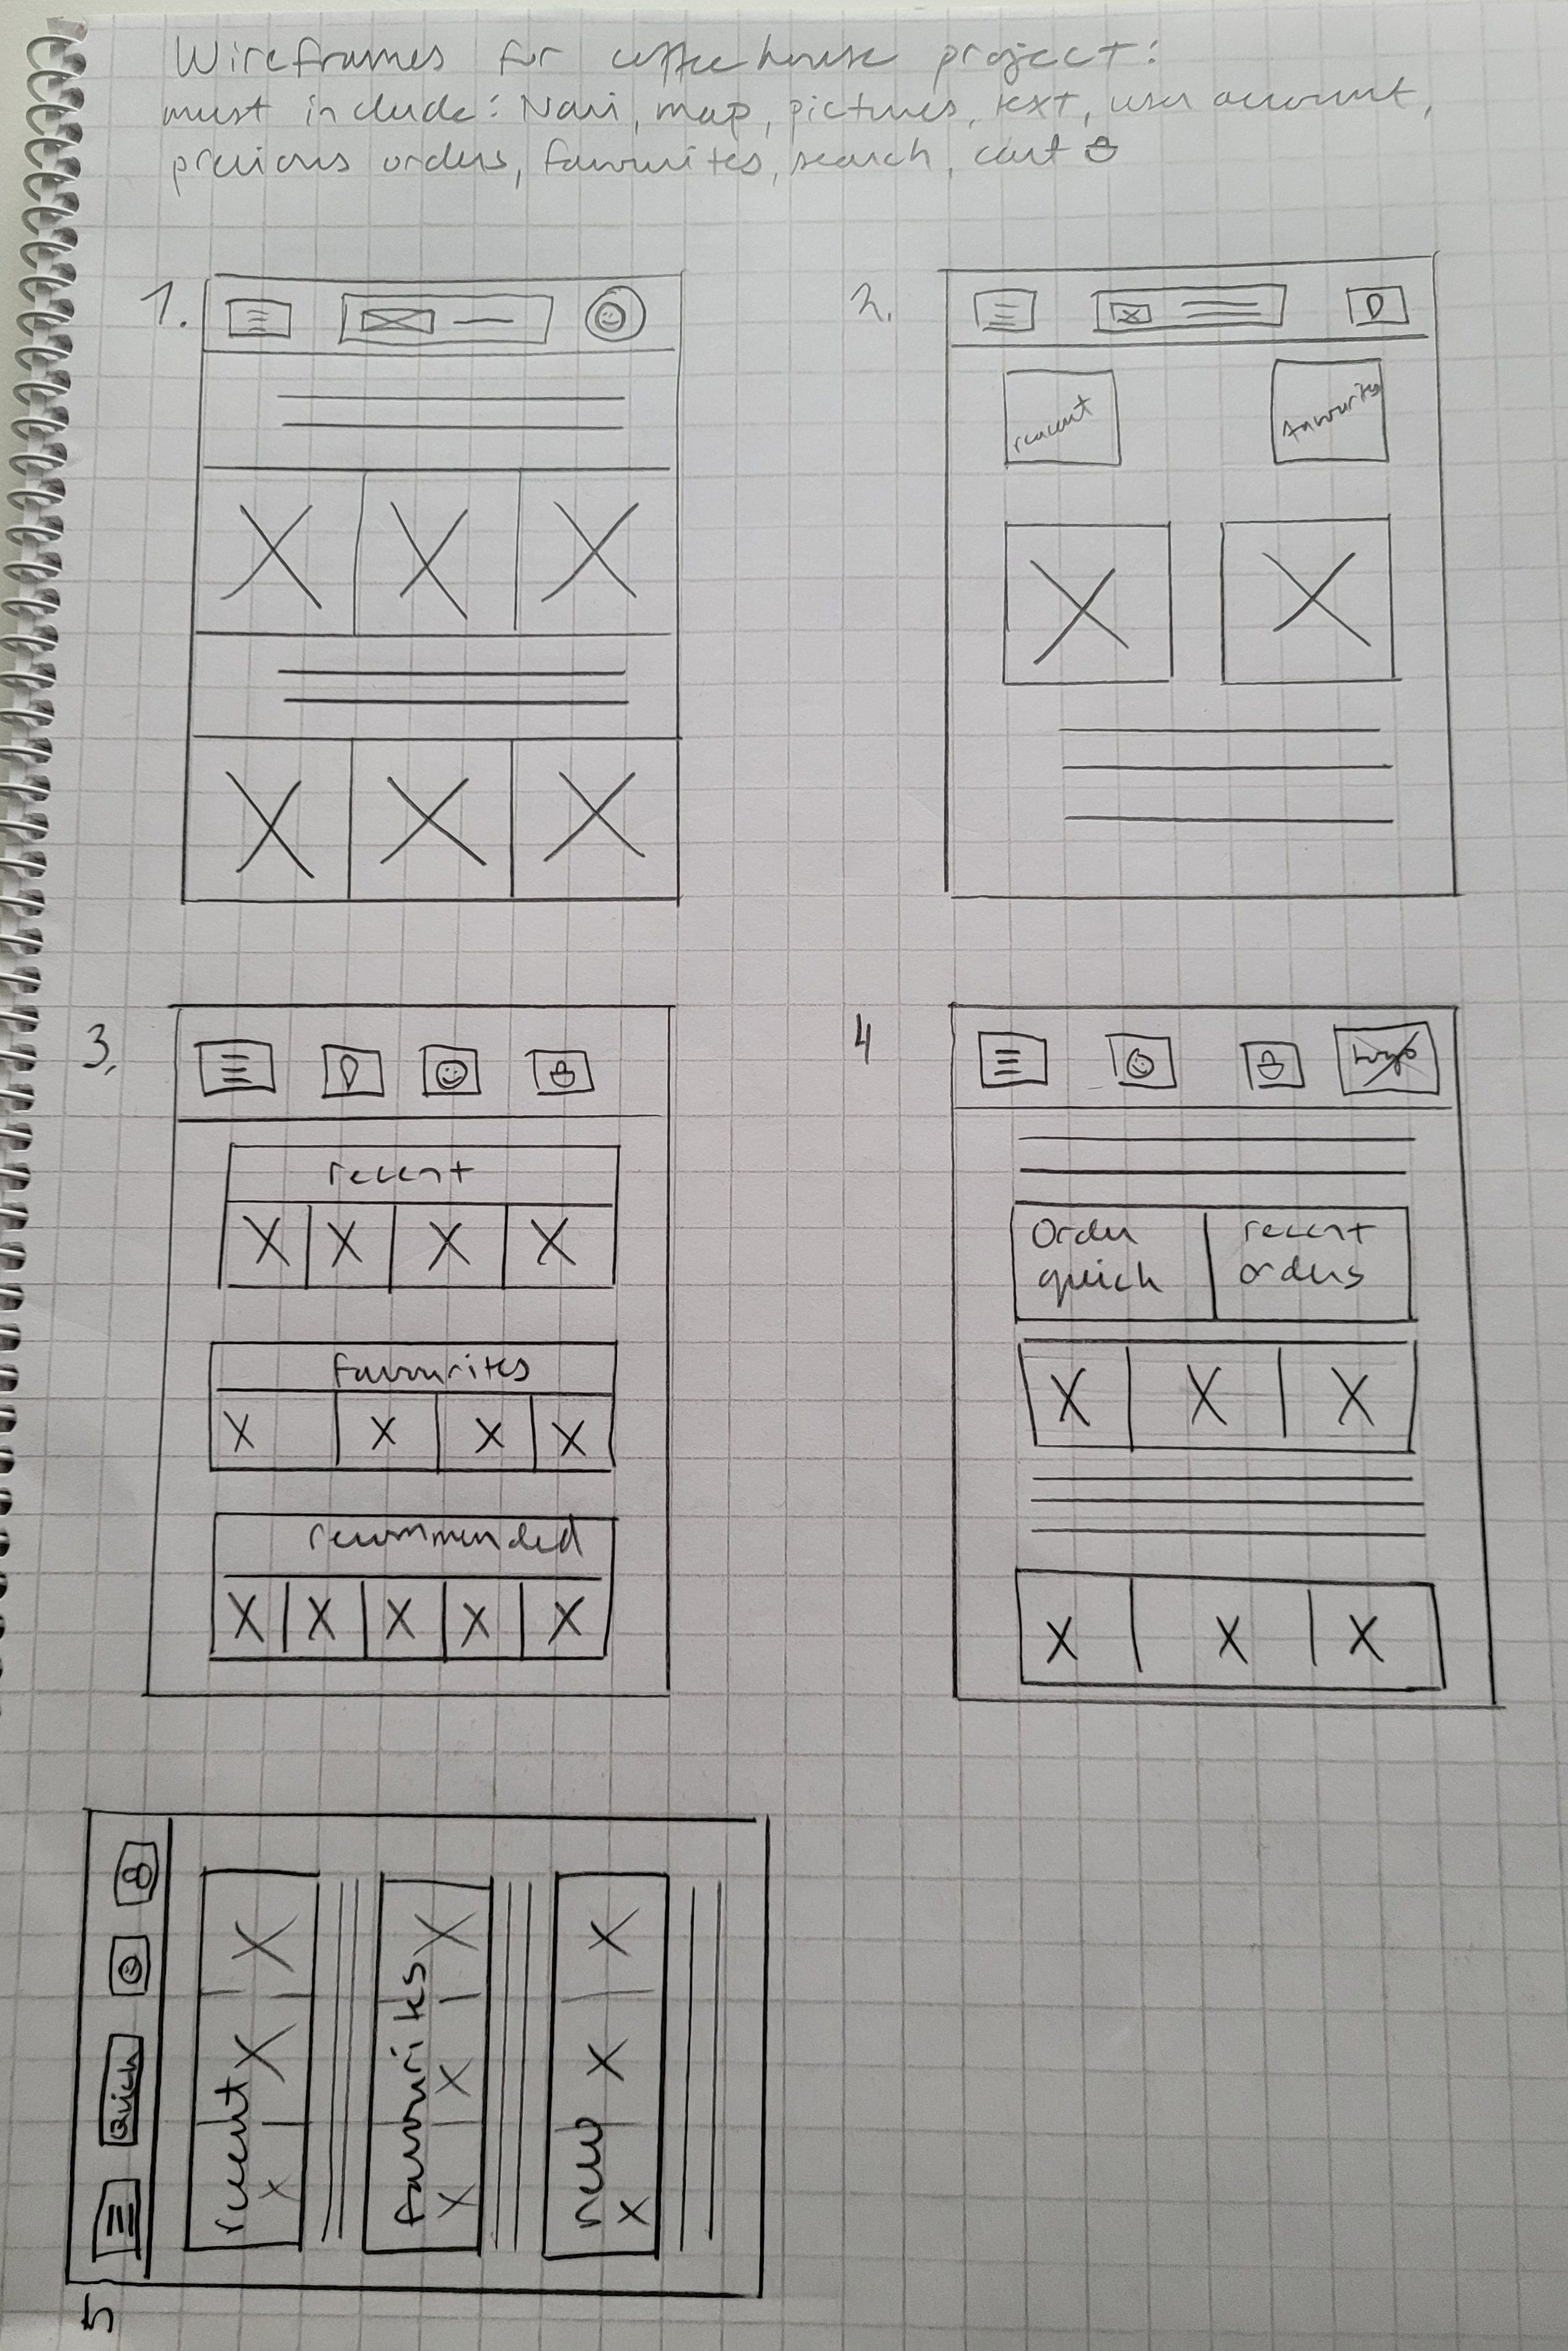 Wireframes for coffeehouse project:
must include: Navi, map, pictures, text, user account,
previous orders, favourites, search, cart
1.
2.
reacent
favourites
3.
recent
favourites
recommended
4
Logo
Order quick
recent orders
5
Quick
recent
favourites
new